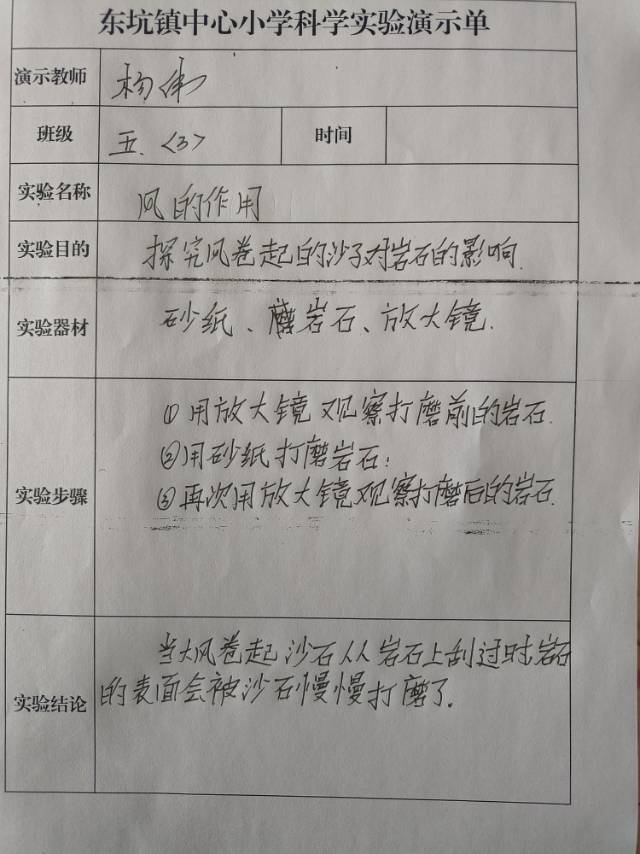 东坑镇中心小学科学实验演示单
演示教师 杨伟
班级 五.〈3〉 时间
实验名称 风的作用
实验目的 探究风卷起的沙子对岩石的影响.
实验器材 砂纸、磨岩石、放大镜.
①用放大镜观察打磨前的岩石.
②用砂纸打磨岩石;
实验步骤 ③再次用放大镜观察打磨后的岩石.
当大风卷起沙石从岩石上刮过时岩石
实验结论 的表面会被沙石慢慢打磨了.